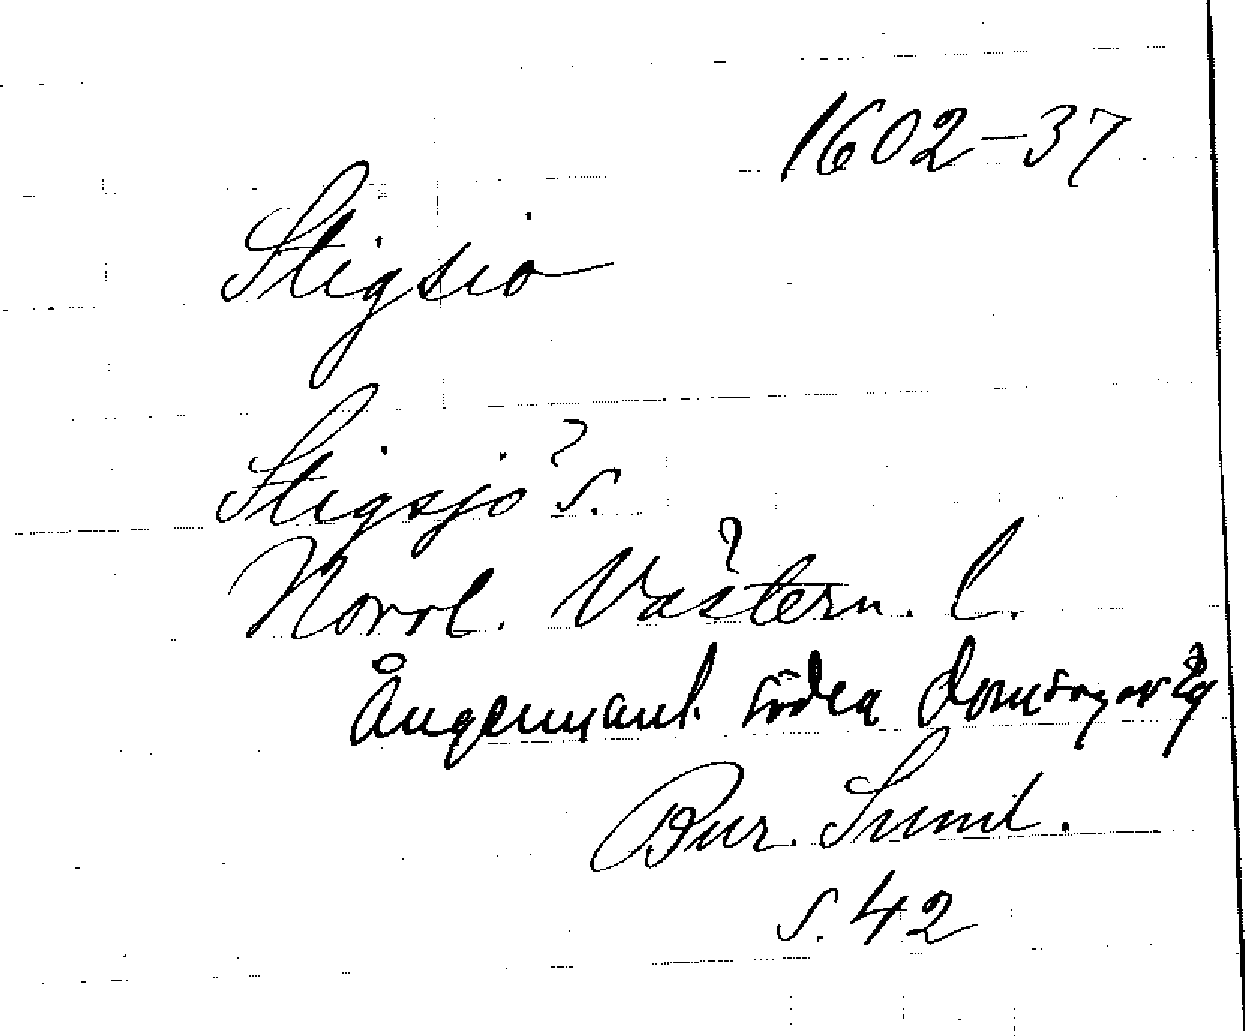 1602-37
Stigsio
Stigsjö s.
Norrl. Västern. l.
Ångermanl. södra domsaga
Bur. Suml.
s. 42